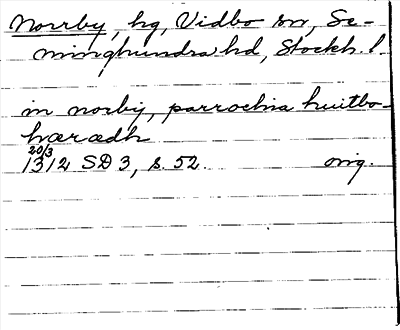 Norrby, hg, Vidbo sn, Se-
minghundra hd, Stockh. l.
in norby, parrochia huitbo-
haeradh
20/3
1312 SD 3, s. 52. orig.